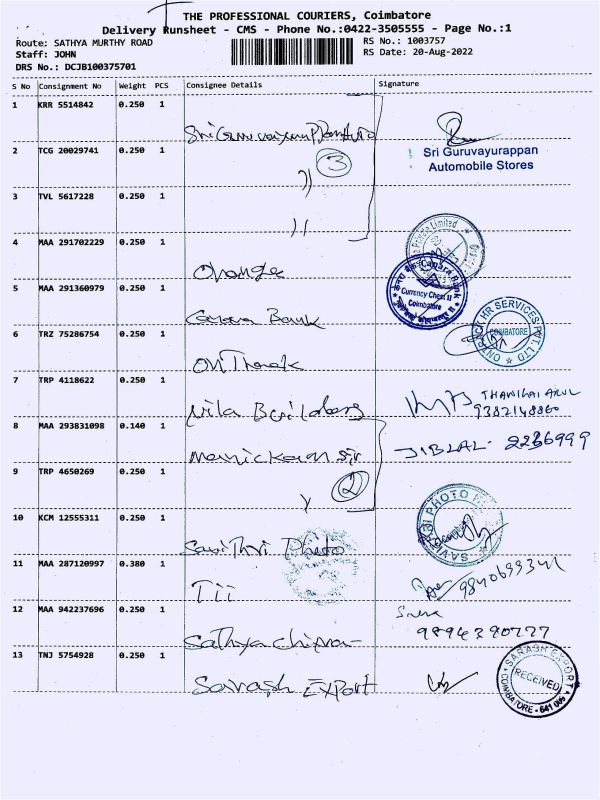 THE PROFESSIONAL COURIERS, Coimbatore
Delivery Runsheet - CMS - Phone No.:0422-3505555 - Page No.:1
Route: SATHYA MURTHY ROAD
RS No.: 1003757
Staff: JOHN
RS Date: 20-Aug-2022
DRS No.: DCJB100375701
S No Consignment No Weight PCS Consignee Details Signature
1 KRR 5514842 0.250 1
2 TCG 20029741 0.250 1 3
Sri Guruvayurappan
Automobile Stores
3 TVL 5617228 0.250 1 "
"
4 MAA 291702229 0.250 1 Orange
Private Limited
5 MAA 291360979 0.250 1 Canara Bank
Canara Bank
Currency Chest II
Coimbatore
6 TRZ 75286754 0.250 1 OnTrack
ONTRACK HR SERVICES PVT. LTD
COIMBATORE
7 TRP 4118622 0.250 1 Nila Builders
9382148860
8 MAA 293831098 0.140 1 Manickam Sir
JIBLAL. 2236999
9 TRP 4650269 0.250 1 2
10 KCM 12555311 0.250 1 Savithri Photo
SAVITHRI PHOTO
11 MAA 287120997 0.380 1 TII
12 MAA 942237696 0.250 1
13 TNJ 5754928 0.250 1 Sarash Export
SARASH EXPORT
RECEIVED
COIMBATORE - 641